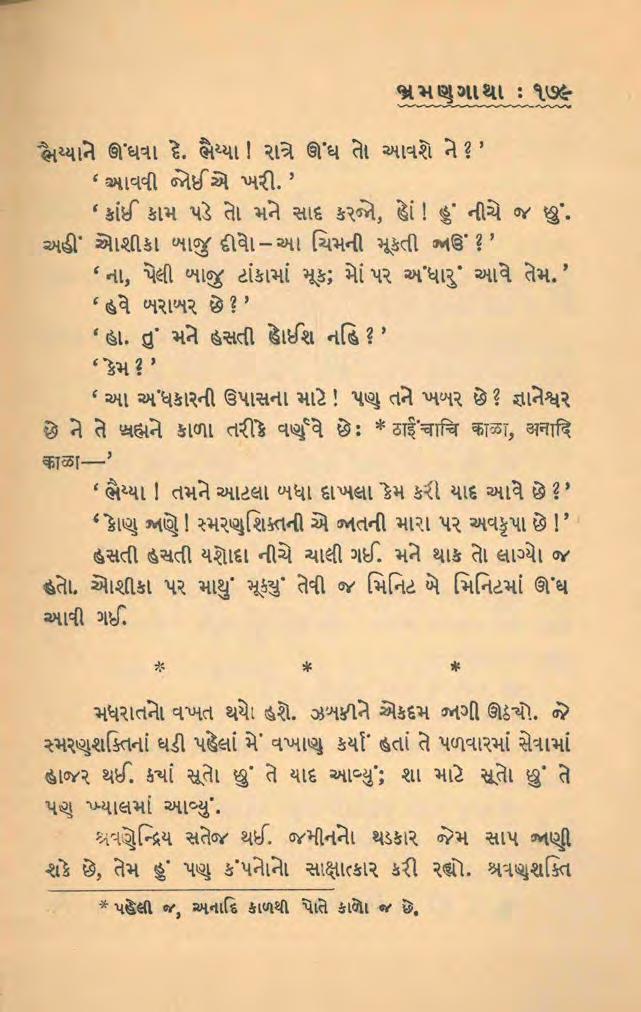 ભ્રમણગાથા : ૧૭૯
ભૈય્યાને ઊંઘવા દે. ભૈય્યા! રાત્રે ઊંઘ તો આવશે ને?’
‘આવવી જોઈએ ખરી.’
‘કાંઈ કામ પડે તો મને સાદ કરજો, હોં! હું નીચે જ છું.
અહીં ઓશીકા બાજુ દીવો–આ ચિમની મૂકતી જાઉં?’
‘ના, પેલી બાજુ ટાંકામાં મૂક; મોં પર અંધારું આવે તેમ.’
‘હવે બરાબર છે?’
‘હા. તું મને હસતી હોઈશ નહિ?’
‘કેમ?’
‘આ અંધકારની ઉપાસના માટે! પણ તને ખબર છે? જ્ઞાનેશ્વર
છે ને તે બ્રહ્મને કાળા તરીકે વર્ણવે છે: * ठाईंचाचि काळा, अनादि
काळा—’
‘ભૈય્યા! તમને આટલા બધા દાખલા કેમ કરી યાદ આવે છે?’
‘કોણ જાણે! સ્મરણશક્તિની એ જાતની મારા પર અવકૃપા છે!’
હસતી હસતી યશોદા નીચે ચાલી ગઈ. મને થાક તો લાગ્યો જ
હતો. ઓશીકા પર માથું મૂક્યું તેવી જ મિનિટ બે મિનિટમાં ઊંઘ
આવી ગઈ.
* * *
મધરાતનો વખત થયો હશે. ઝબકીને એકદમ જાગી ઊઠ્યો. જે
સ્મરણશક્તિનાં ઘડી પહેલાં મેં વખાણ કર્યાં હતાં તે પળવારમાં સેવામાં
હાજર થઈ. ક્યાં સૂતો છું તે યાદ આવ્યું; શા માટે સૂતો છું તે
પણ ખ્યાલમાં આવ્યું.
શ્રવણેન્દ્રિય સતેજ થઈ. જમીનનો થડકાર જેમ સાપ જાણી
શકે છે, તેમ હું પણ કંપનોનો સાક્ષાત્કાર કરી રહ્યો. શ્રવણશક્તિ
* પહેલી જ, અનાદિ કાળથી પોતે કાળો જ છે.